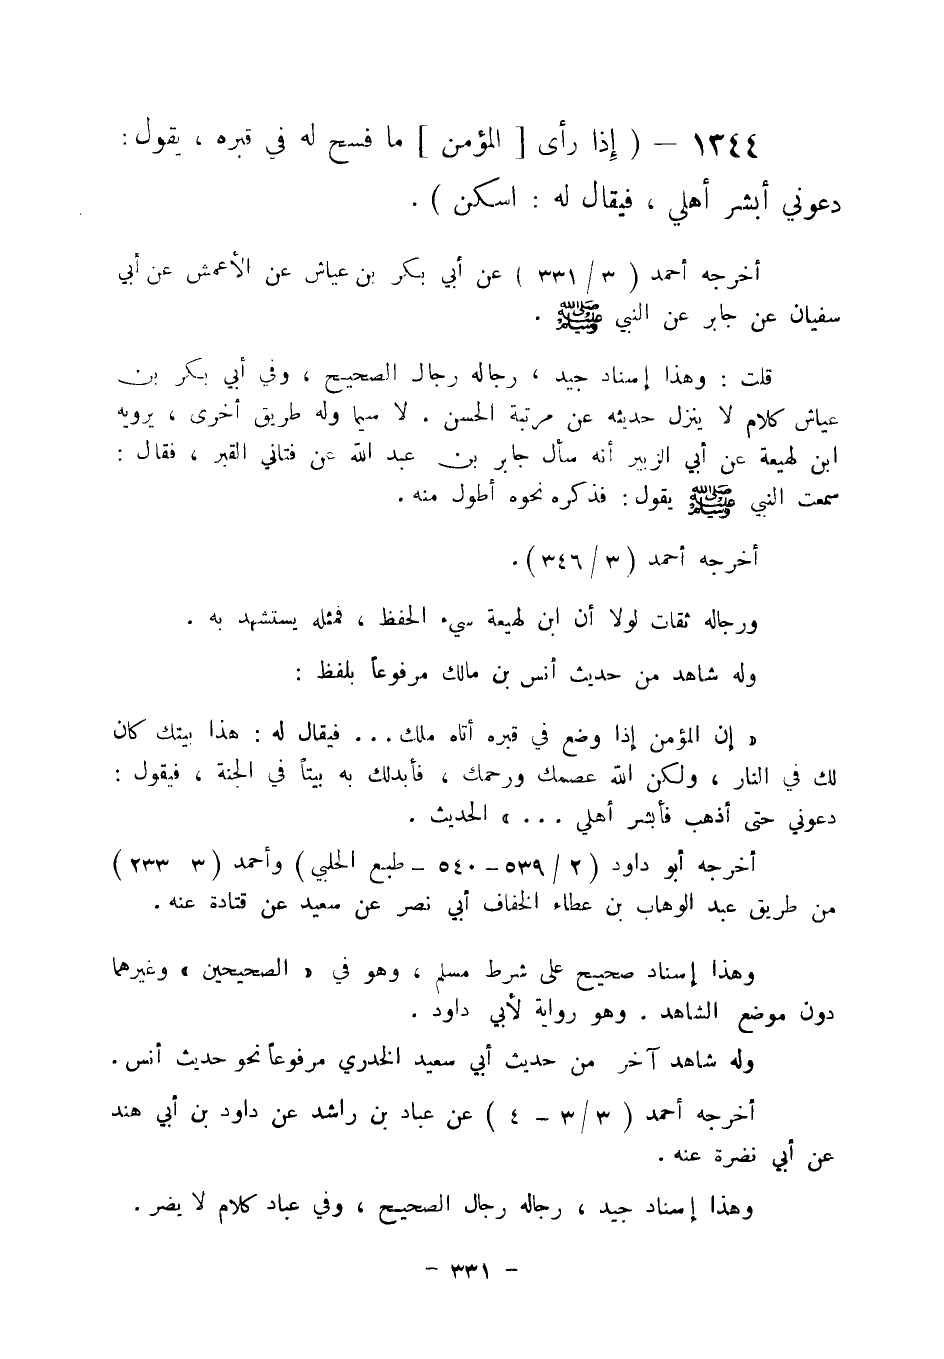 ١٣٤٤ – ( إذا رأى [ المؤمن ] ما فسح له في قبره ، يقول :
دعوني أبشر أهلي ، فيقال له : اسكن ) .
أخرجه أحمد ( ٣ / ٣٣١ ) عن أبي بكر بن عياش عن الأعمش عن أبي
سفيان عن جابر عن النبي ﷺ .
قلت : وهذا إسناد جيد ، رجاله رجال الصحيح ، وفي أبي بكر بن
عياش كلام لا ينزل حديثه عن مرتبة الحسن . لا سيما وله طريق أخرى ، يرويه
ابن لهيعة عن أبي الزبير أنه سأل جابر بن عبد الله عن فتاني القبر ، فقال :
سمعت النبي ﷺ يقول : فذكره نحوه أطول منه .
أخرجه أحمد ( ٣ / ٣٤٦ ) .
ورجاله ثقات لولا أن ابن لهيعة سيء الحفظ ، فمثله يستشهد به .
وله شاهد من حديث أنس بن مالك مرفوعاً بلفظ :
« إن المؤمن إذا وضع في قبره أتاه ملك . . . فيقال له : هذا بيتك كان
لك في النار ، ولكن الله عصمك ورحمك ، فأبدلك به بيتاً في الجنة ، فيقول :
دعوني حتى أذهب فأبشر أهلي . . . » الحديث .
أخرجه أبو داود ( ٢ / ٥٣٩ – ٥٤٠ – طبع الحلبي ) وأحمد ( ٣ ٢٣٣ )
من طريق عبد الوهاب بن عطاء الخفاف أبي نصر عن سعيد عن قتادة عنه .
وهذا إسناد صحيح على شرط مسلم ، وهو في « الصحيحين » وغيرهما
دون موضع الشاهد . وهو رواية لأبي داود .
وله شاهد آخر من حديث أبي سعيد الخدري مرفوعاً نحو حديث أنس .
أخرجه أحمد ( ٣ / ٣ – ٤ ) عن عباد بن راشد عن داود بن أبي هند
عن أبي نضرة عنه .
وهذا إسناد جيد ، رجاله رجال الصحيح ، وفي عباد كلام لا يضر .
– ٣٣١ –